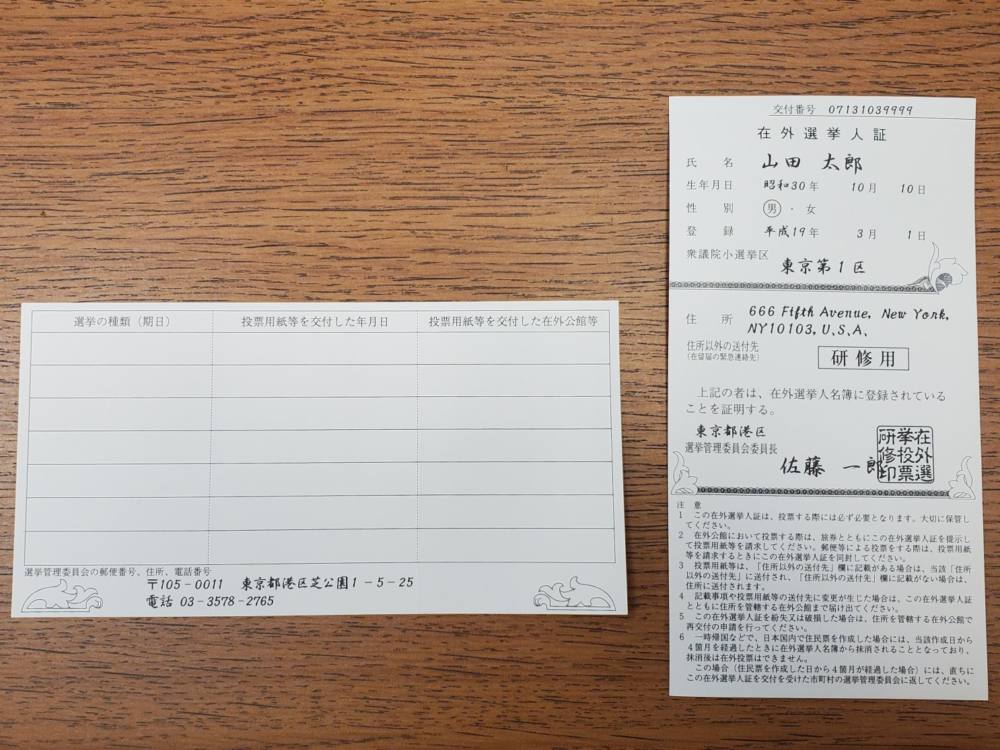 選挙の種類（期日） 投票用紙等を交付した年月日 投票用紙等を交付した在外公館等
選挙管理委員会の郵便番号、住所、電話番号
〒105－0011 東京都港区芝公園1－5－25
電話 03－3578－2765
交付番号 07131039999
在外選挙人証
氏名 山田 太郎
生年月日 昭和30年 10月 10日
性別 男・女
登録 平成19年 3月 1日
衆議院小選挙区 東京第1区
住所 666 Fifth Avenue, New York,
NY10103, U.S.A.
住所以外の送付先
（在留届の緊急連絡先）
研修用
上記の者は、在外選挙人名簿に登録されている
ことを証明する。
東京都港区
選挙管理委員会委員長
佐藤 一郎
在外選
挙投票
研修印
注意
1 この在外選挙人証は、投票する際には必ず必要となります。大切に保管し
てください。
2 在外公館において投票する際は、旅券とともにこの在外選挙人証を提示し
て投票用紙等を請求してください。郵便等による投票をする際は、投票用紙
等を請求するときにこの在外選挙人証を同封してください。
3 投票用紙等は、「住所以外の送付先」欄に記載がある場合は、当該「住所
以外の送付先」に送付され、「住所以外の送付先」欄に記載がない場合は、
住所に送付されます。
4 記載事項や投票用紙等の送付先に変更が生じた場合は、この在外選挙人証
とともに住所を管轄する在外公館まで届け出てください。
5 この在外選挙人証を紛失又は破損した場合は、住所を管轄する在外公館で
再交付の申請を行ってください。
6 一時帰国などで、日本国内で住民票を作成した場合には、当該作成日から
4箇月を経過したときに在外選挙人名簿から抹消されることとなっており、
抹消後は在外投票はできません。
この場合（住民票を作成した日から4箇月が経過した場合）には、直ちに
この在外選挙人証を交付を受けた市町村の選挙管理委員会に返してください。